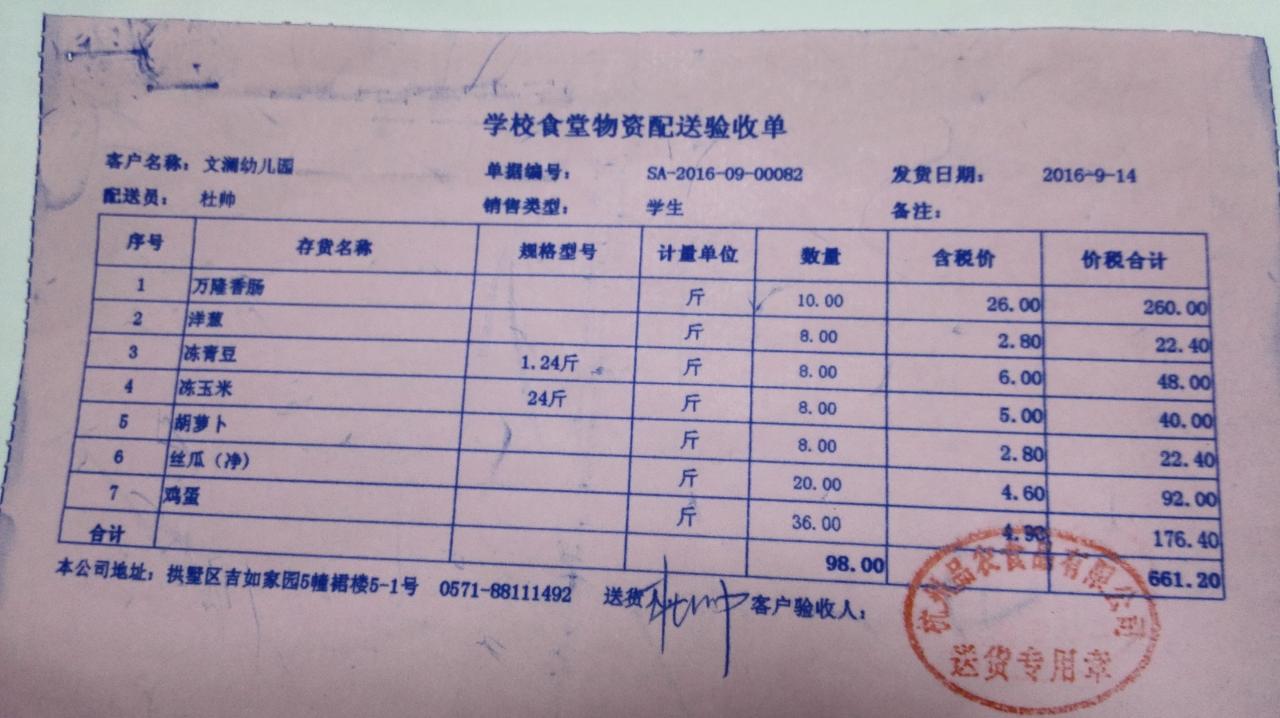 学校食堂物资配送验收单
客户名称：文澜幼儿园 单据编号： SA-2016-09-00082 发货日期： 2016-9-14
配送员： 杜帅 销售类型： 学生 备注：
序号 存货名称 规格型号 计量单位 数量 含税价 价税合计
1 万隆香肠 斤 10.00 26.00 260.00
2 洋葱 斤 8.00 2.80 22.40
3 冻青豆 1.24斤 斤 8.00 6.00 48.00
4 冻玉米 24斤 斤 8.00 5.00 40.00
5 胡萝卜 斤 8.00 2.80 22.40
6 丝瓜（净） 斤 20.00 4.60 92.00
7 鸡蛋 斤 36.00 4.90 176.40
合计 98.00 661.20
本公司地址：拱墅区吉如家园5幢裙楼5-1号 0571-88111492 送货 客户验收人：
杭州品农食品有限公司
送货专用章